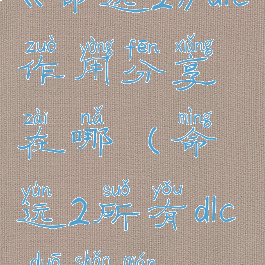 《命运2》dlc
zuò yòng fēn xiǎng
作用分享
zài nǎ mìng
在哪（命
yùn suǒ yǒu
运2所有dlc
duō shǎo